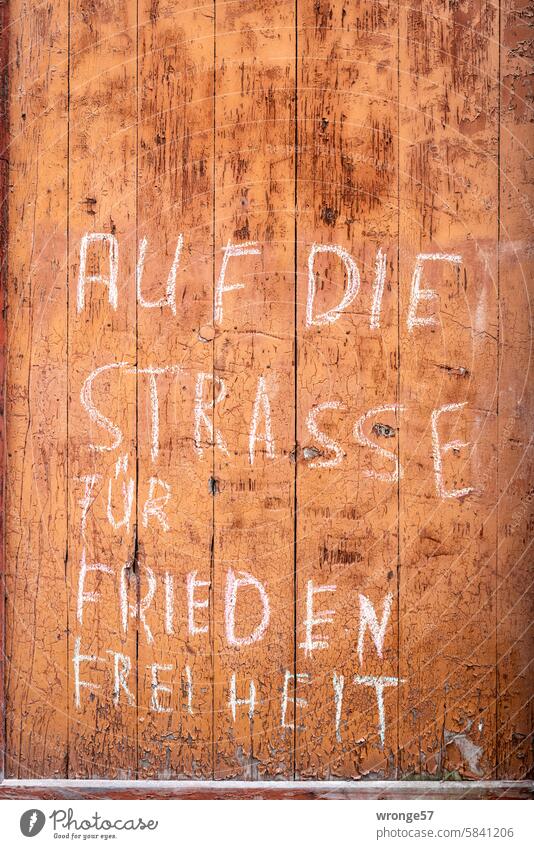 AUF DIE
STRASSE
FÜR
FRIEDEN
FREIHEIT
PHOTOCASE
Good for your eyes.
wronge57 S 5841206